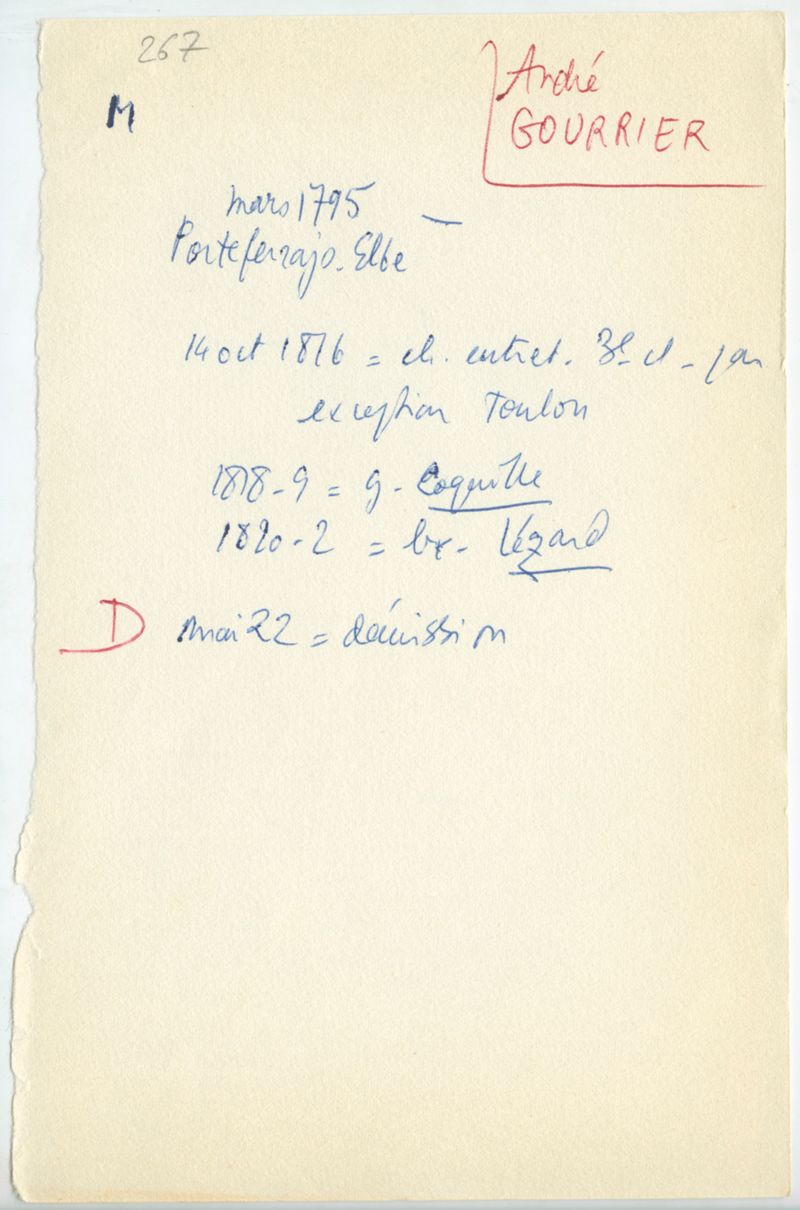 267
M
André
GOURRIER
mars 1795 –
Porteferrajo. Elbe
14 oct 1816 = ch. entret. 3e cl - par
exception Toulon
1818-9 = g. Coquille
1820-2 = bx. Lézard
D mai 22 = démission